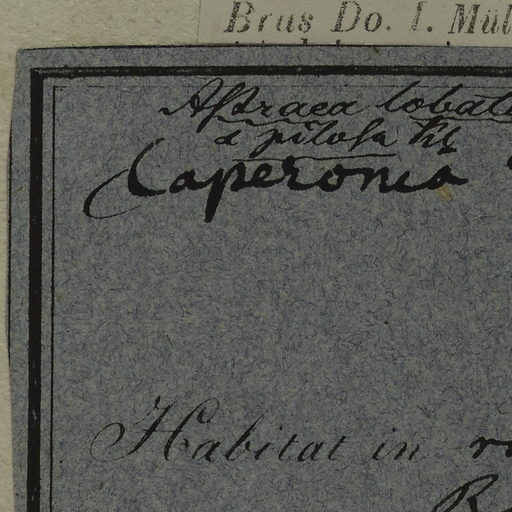 Brus Do. I. Mül
Astraea lobata
α pilosa Kl
Caperonia
Habitat in